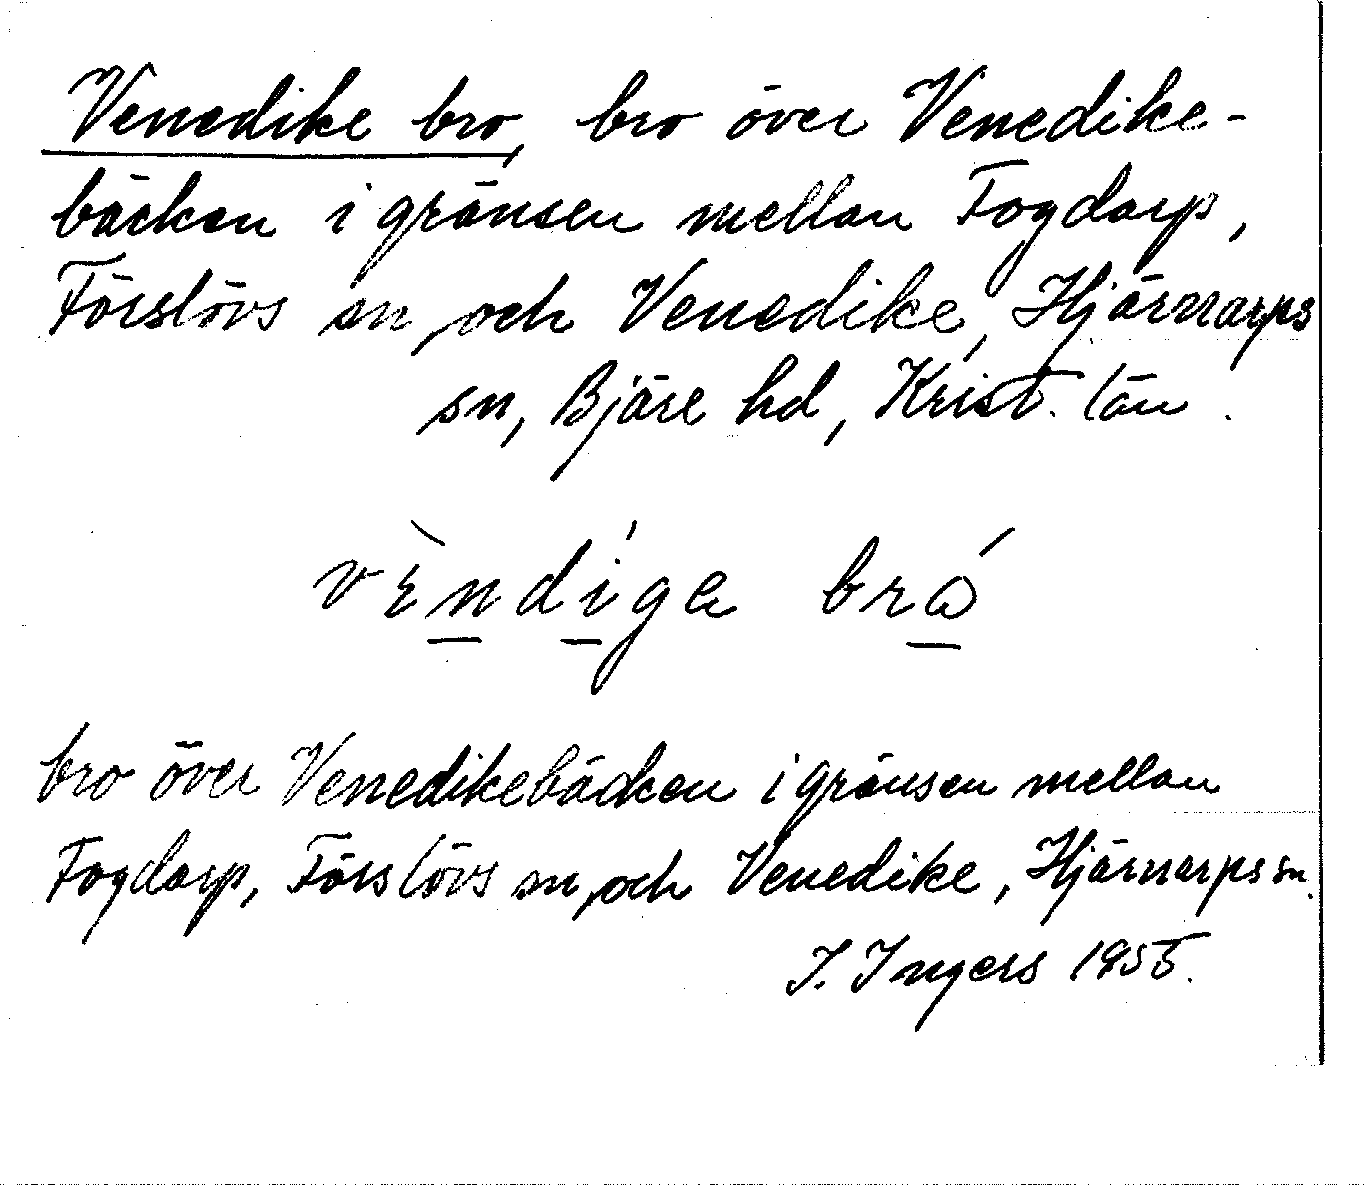 Venedike bro, bro över Venedike-
bäcken i gränsen mellan Fogdarp,
Förslövs sn, och Venedike, Hjärnarps
sn, Bjäre hd, Krist. län.
vèndíga brá
bro över Venedikebäcken i gränsen mellan
Fogdarp, Förslövs sn, och Venedike, Hjärnarps sn.
I. Ingers 1955.